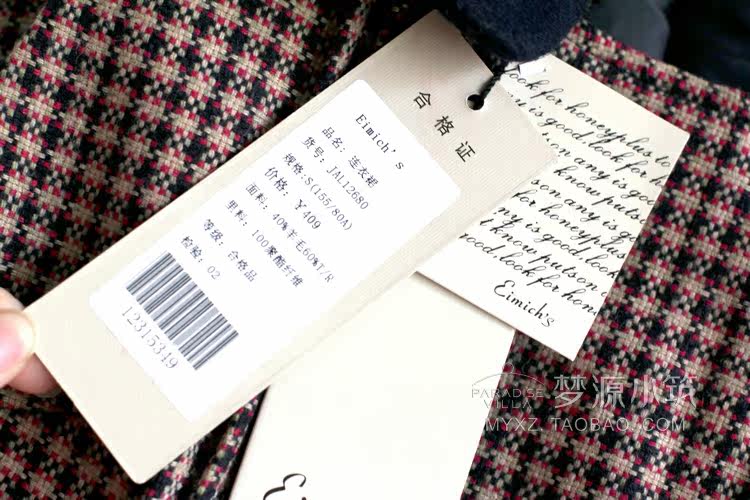 合格证
Eimich's
品名: 连衣裙
货号: JAL12680
规格:S(155/80A)
价格: ￥409
面料: 40%羊毛60%T/R
里料: 100聚酯纤维
等级: 合格品
检验: 02
12315349
look for honeyplus to
put is good.look for
on any is good
know putson
son any is good
for honeyplus
ny is good.look
know putson
good.look for hon
Eimich's
PARADISE
VILLA
梦源小筑
MYXZ.TAOBAO.COM